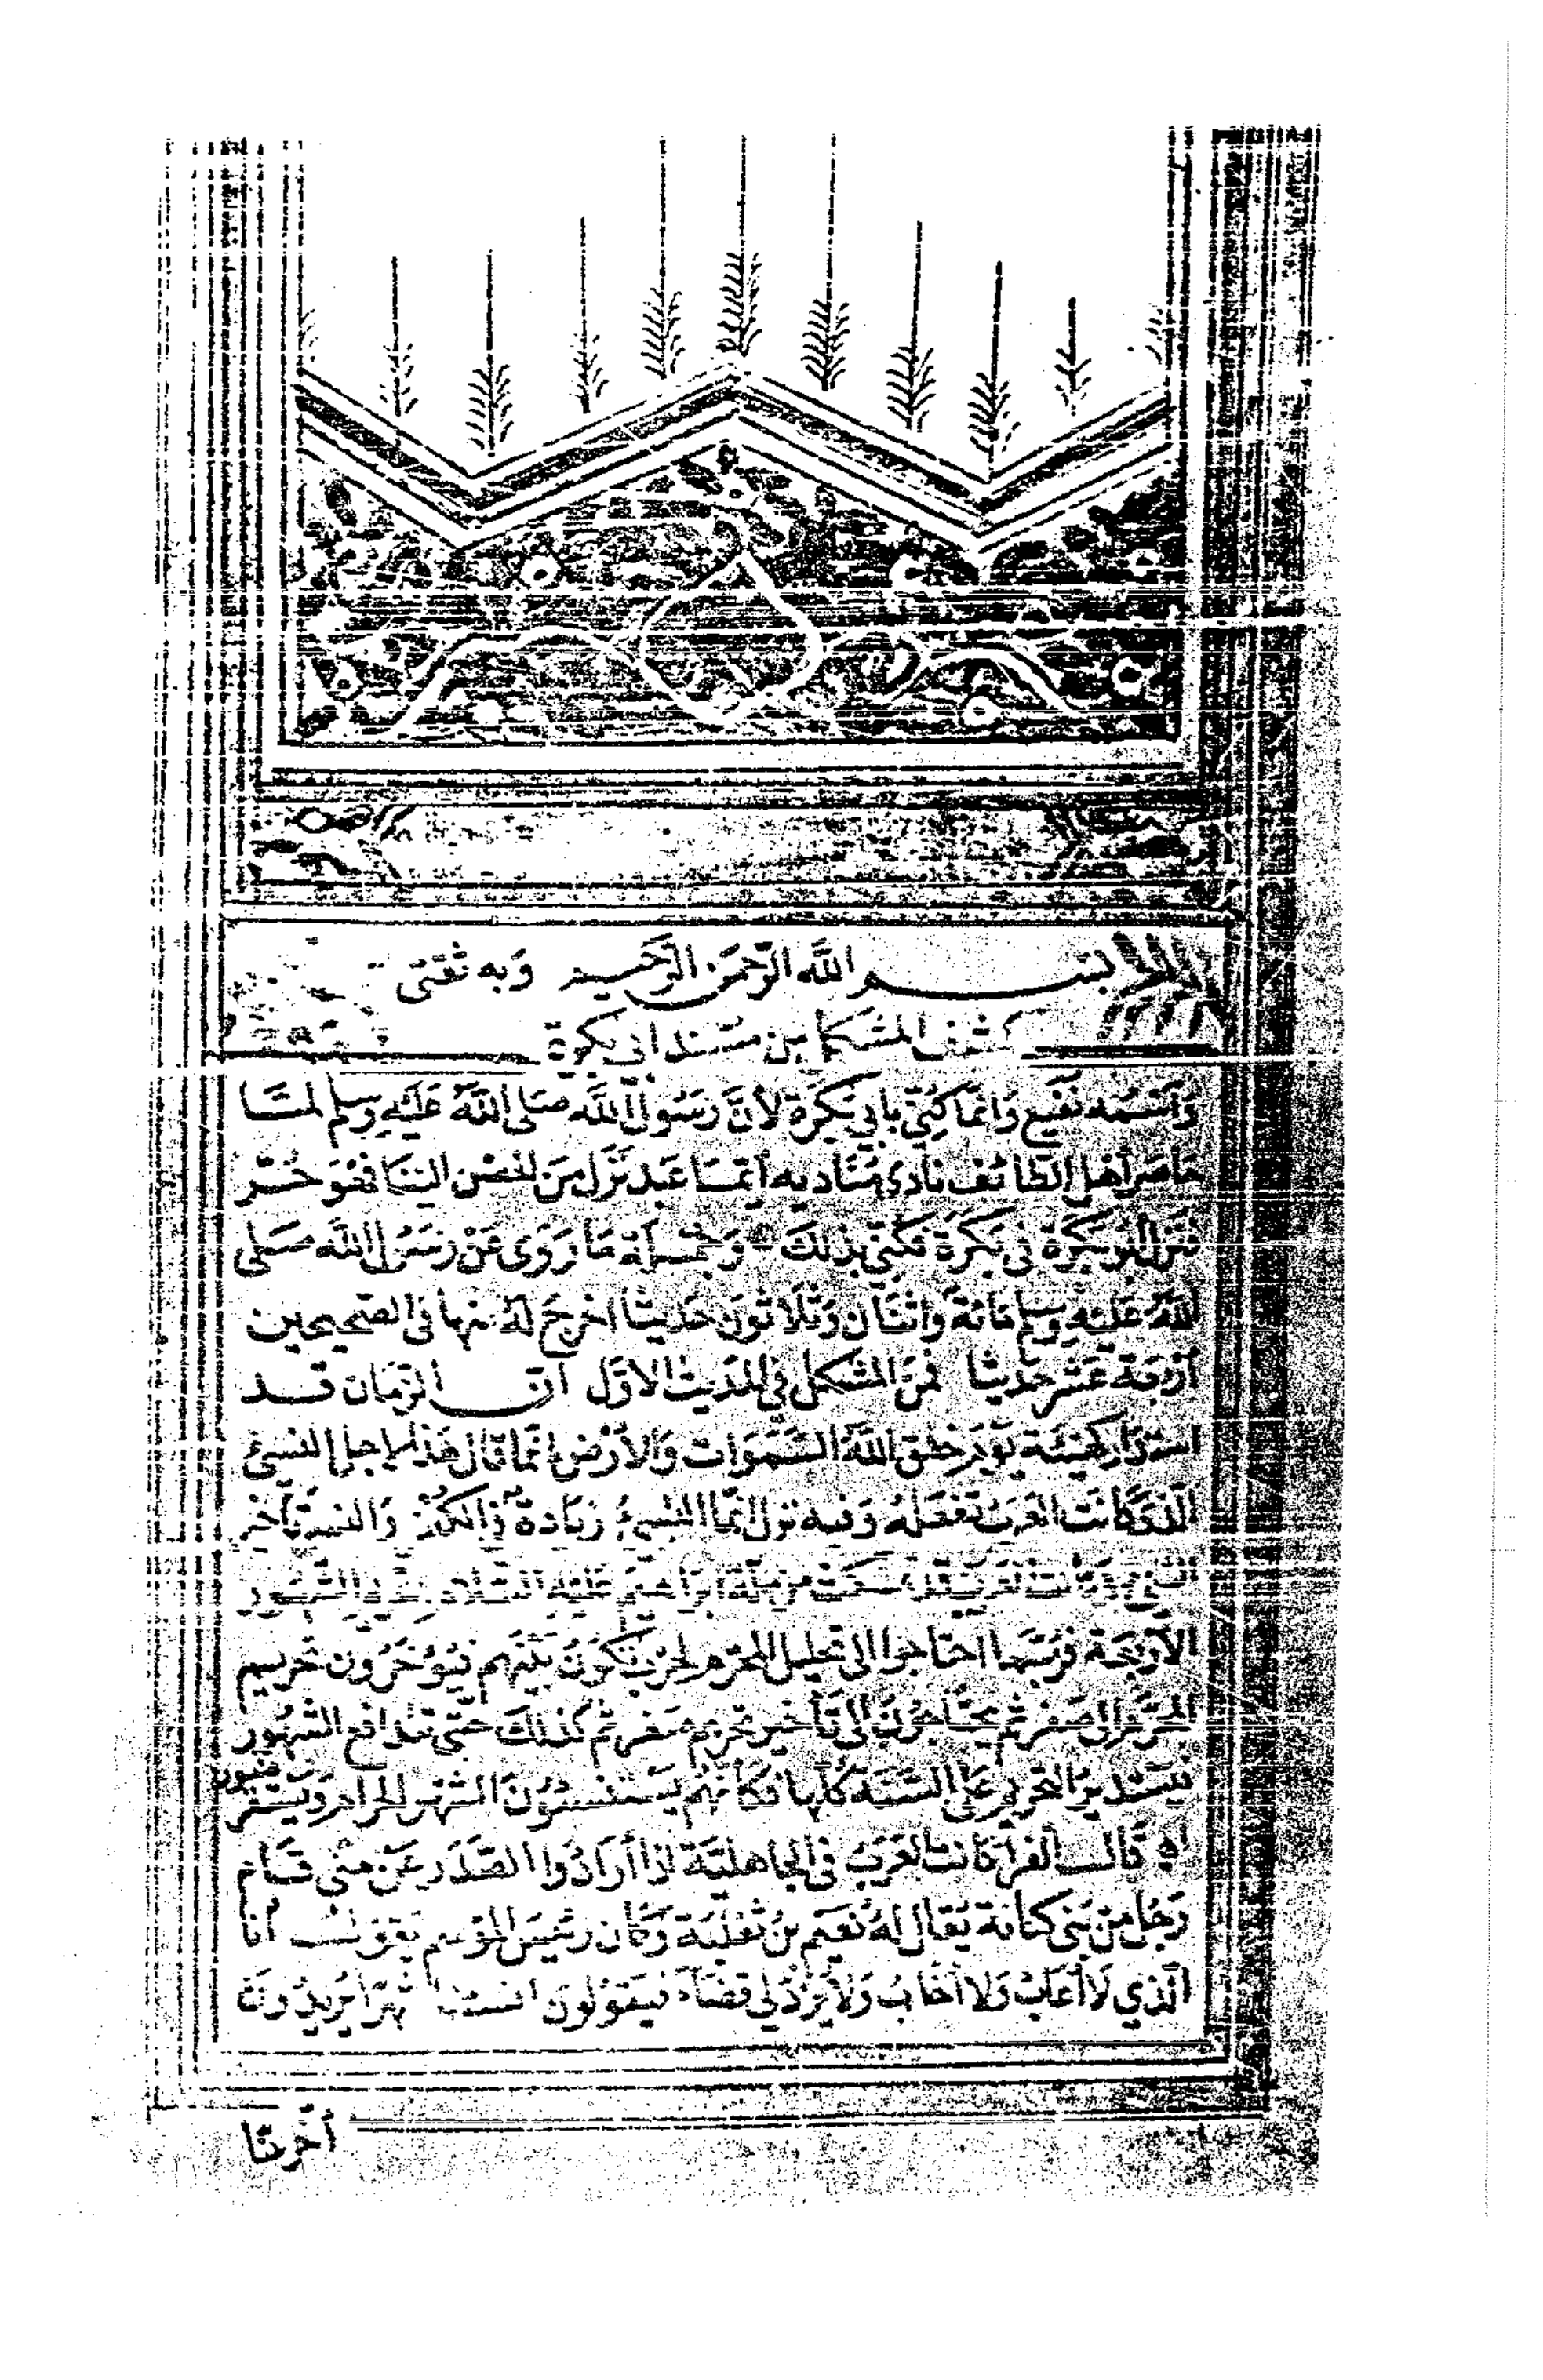 بسم الله الرحمن الرحيم وبه ثقتي
كشف المشكل من مسند ابي بكرة
وَاسْمُه نُفَيع وَانما كُنِّيَ بأبي بَكرَة لأنَّ رَسُول اللَّه صَلى اللَّهُ عَلَيْهِ وسلم لمَّا
حَاصَر أهل الطائف نادى مُنَاديه أيّمَا عَبد نَزَل مِنَ الحصْن الينَا فهُوَ حُرّ
فنَزل ابو بَكرَة في بَكرَة فكُنّي بذلكَ وَجُملَة مَا رَوَى عَنْ رَسُول اللَّه صَلى
اللَّهُ عَلَيْهِ وسلم مائة وَاثنَان وَثلاثونَ حَديثًا اخرجَ لهُ منها في الصَّحيحين
أرْبَعَة عَشَر حَديثا فمنَ المشكل في الحَديث الأوَّل ان الزمَان قد
اسْتَدَار كهَيئَة يَوم خلق اللَّهُ السَّمَوَات وَالأرْض انمَا قال هَذا لاجل النسيء
الذي كانَت العَرَب تفعَلهُ وَفيه نزل انّمَا النسيء زيَادة في الكفر وَالنسيء تأخير
الشيء وَكانت العَرب قد تمسكتْ من ملة ابراهيم عَليْه السَّلام بتحريم الشهُور
الأرْبَعَة فرُبّمَا احتاجوا الى تحليل المحَرّم لحَرْب تكونُ بَيْنهم فيُؤخّرُون تحريم
المحَرّم الى صَفر ثم يحتَاجُونَ الى تأخير تحريم صَفر ثم كذلكَ حَتّى تتدافع الشهُور
فيَسْتَدير التحريم عَلى السَّنَة كُلّها فكأنّهُم يَسْتنسئُونَ الشّهر الحرام وَيستقرضون
قَال الفرّا كانت العَرَبُ في الجاهلية اذا أرَادُوا الصَّدَر عَنْ مِنًى قَام
رَجُل مِنْ بَني كنانَة يُقال لهُ نُعَيم بنُ ثعْلبَة وَكَان رَئيسَ الموْسِم فيَقول أنا
الذي لاَ أعَابُ وَلا أخَابُ وَلاَ يُرَدُّ لي قضَاء فيَقُولُونَ انسئنا شهرًا يُريدُونَ
أخّر عنّا